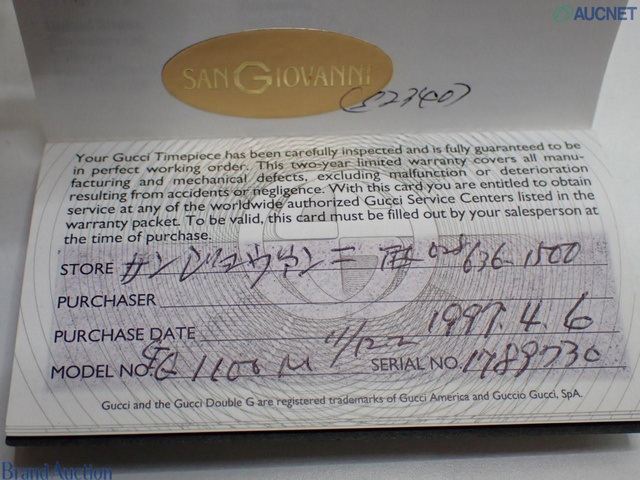 AUCNET
SAN GIOVANNI
(52340)
Your Gucci Timepiece has been carefully inspected and is fully guaranteed to be
in perfect working order. This two-year limited warranty covers all manu-
facturing and mechanical defects, excluding malfunction or deterioration
resulting from accidents or negligence. With this card you are entitled to obtain
service at any of the worldwide authorized Gucci Service Centers listed in the
warranty packet. To be valid, this card must be filled out by your salesperson at
the time of purchase.
STORE サンジョヴァンニ 028 636-1500
PURCHASER
PURCHASE DATE 1997. 4. 6
MODEL NO. 1100 M SERIAL NO. 1789730
Gucci and the Gucci Double G are registered trademarks of Gucci America and Guccio Gucci, SpA.
Brand Auction